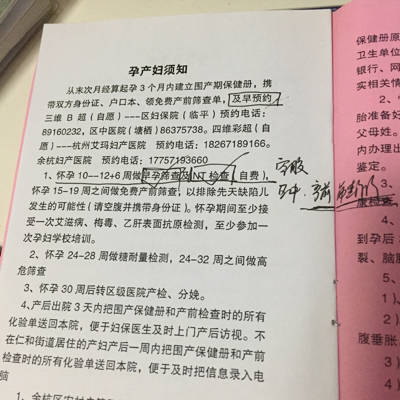 孕产妇须知
从末次月经算起孕3个月内建立围产期保健册，携
带双方身份证、户口本、领免费产前筛查单，及早预约
三维B超（自愿）---区妇保院（临平）预约电话：
89160232，区中医院（塘栖）86375738。四维彩超（自
愿）---杭州艾玛妇产医院 预约电话：18267189166。
余杭妇产医院 预约电话：17757193660
1、怀孕10-12+6周做早孕筛查及NT检查（自费），
怀孕15-19周之间做免费产前筛查，以排除先天缺陷儿
发生的可能性（请空腹并携带身份证）。怀孕期间至少接
受一次艾滋病、梅毒、乙肝表面抗原检测，至少参加一
次孕妇学校培训。
2、怀孕24-28周做糖耐量检测，24-32周之间做高
危筛查
3、怀孕30周后转区级医院产检、分娩。
4、产后出院3天内把围产保健册和产前检查时的所有
化验单送回本院，便于妇保医生及时上门产后访视。不
在仁和街道居住的产妇产后一周内把围产保健册和产前
检查时的所有化验单送回本院，便于及时把信息录入电
脑
空腹
保健册原
卫生单位
银行、网
实相关情
胎准备好
父母姓。
内办理出
鉴定。
康检查
到孕后
裂、脑
5、
1
2
腹垂胀
3
4、